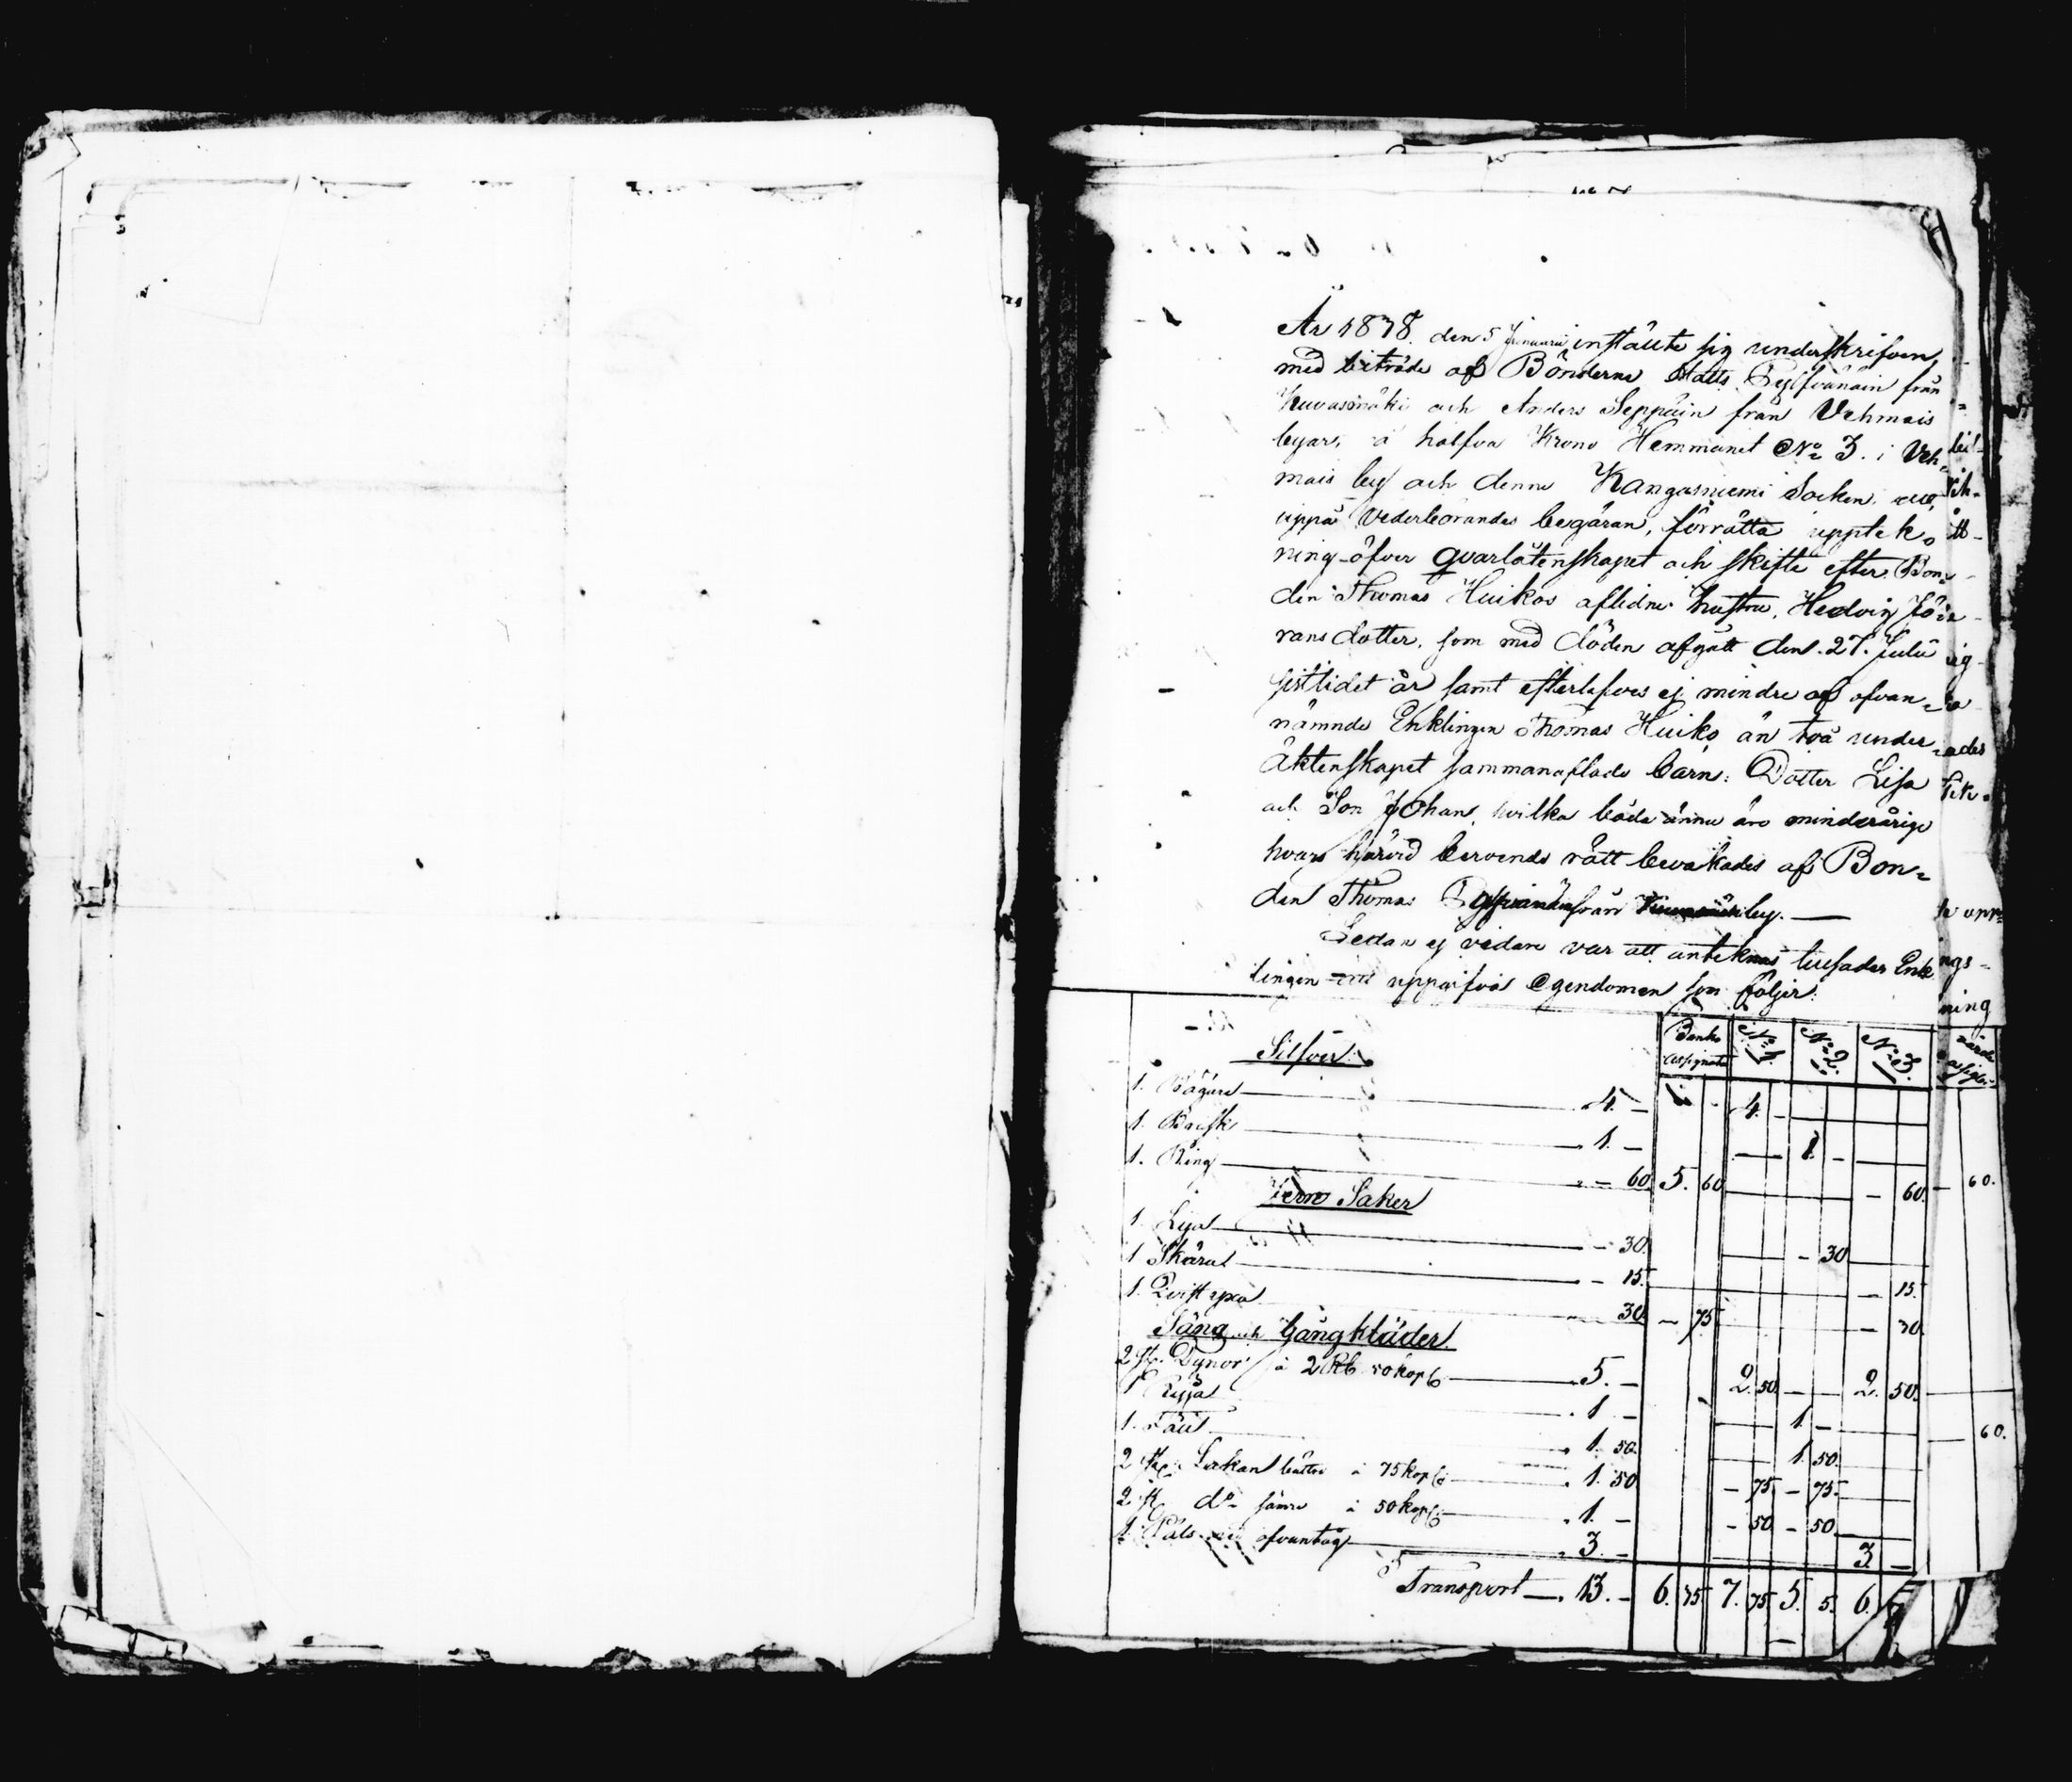 År 1838. den 5 Januarii instälte sig underskrifven
med biträde af Bönderne Matts Pylfvänäin från
Kuvasmäki och Anders Seppäin från Vehmais
byar, å halfva Krono Hemmanet No 3. i Veh-
mais by och denne Kangasniemi Socken, att,
uppå Vederbörandes begäran, förrätta upptek-
ning öfver qvarlåtenskapet och skifte efter Bon-
den Thomas Huikos aflidne hustru, Hedvig Jö-
rans dotter, som med döden afgått den 27. Julii
sistlidet år samt efterlefves ej mindre af ofvan-
nämnde Enklingen Thomas Huiko än två under
Äktenskapet sammanaflade barn: Dotter Lisa
och Son Johan, hvilka både ännu äro minderårige
hvars härvid beroende rätt bevakades af Bon-
den Thomas från by. —
Sedan ej vidare var att antekna tiusades Enk
lingen att uppgifva Egendomen som följer:
Banko Assignat No 1. No 2. No 3.
Silfver.
1. Bägare — 4. — 4. —
1. Brisk — 1. — 1. —
1. Ring — 60. 5. 60 — 60. — 60.
Jern Saker
1. Lija — 30. — 30
1 Skära — 15. — 15.
1. Qvist yxa — 30. — 75 — 30.
Säng och Gångkläder.
2 st. Dynor à 2 Rb 50 kop — 5. — 2. 50. — 2. 50.
1 Ryja — 1. — 1. —
1. Fäll — 1. 50. 1. 50. — 60.
2 st. Lakan bättre à 75 kop — 1. 50 — 75. — 75.
2 st do sämre à 50 kop — 1. — — 50 — 50
1. Päls med ofvantåg — 3. — 3. —
Transport — 13. — 6. 75 7. 75 5. 5. 6.